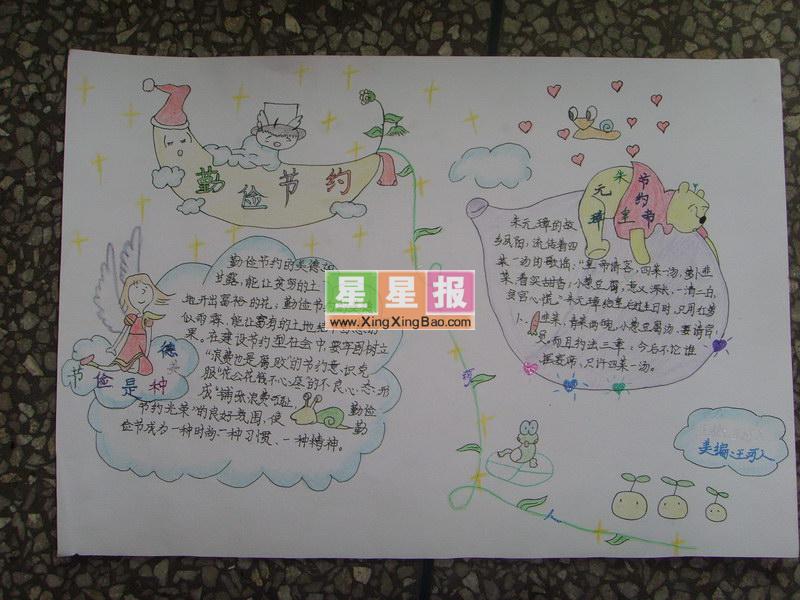 勤俭节约
勤俭节约的美德如
甘露,能让贫穷的土
地开出富裕的花,勤俭节
似雨霖,能让富有的土地结
果。在建设节约型社会中,要牢固树立
“浪费也是腐败”的节约意识,克
服“花公花钱不心疼的不良心态,形
成“铺张浪费可耻,
节约光荣”的良好氛围,使勤俭
俭节成为一种时尚、一种习惯、一种精神。
节俭是种
德
星星报
www.XingXingBao.com
朱元璋皇
节约书
朱元璋的故
乡凤阳,流传着四
菜一汤的歌谣:“皇帝请客,四菜一汤,萝卜韭
菜,着实甜香;小葱豆腐,意义深长,一清二白,
贪官心慌。”朱元璋给皇后过生日时,只用红萝
卜、韭菜,青菜两碗,小葱豆腐汤,宴请官
员。而且约法三章:今后不论谁
摆宴席,只许四菜一汤。
美编:王